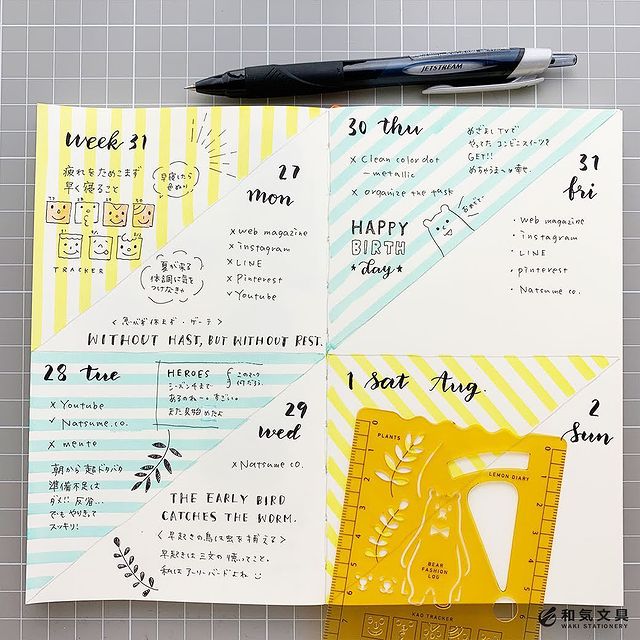 JETSTREAM
week 31
疲れをためこまず
早く寝ること
早寝したら
色ぬり
TRACKER
27
mon
x web magazine
x instagram
x LINE
x Pinterest
x Youtube
夏が来る
体調に気を
つけなきゃ
WITHOUT HAST, BUT WITHOUT REST.
30 thu
x clean color dot
– metallic
x organize the task
めざましTVで
やってた コンビニスイーツを
GET!!
めちゃうまっ♥幸せ.
HAPPY
BIRTH
★day★
おめでとー
31
fri
· web magazine
· instagram
· LINE
· pinterest
· Natsume co.
28 tue
x Youtube
✓ Natsume.co.
x mente
朝から超ドタバタ
準備不足は
ダメ!! 反省...
でもやりきって
スッキリ!
HEROES
シーズン4まで
あるのねー。すごい。
また見始めたよ
このマーク
何だろう.
29
wed
x Natsume co.
THE EARLY BIRD
CATCHES THE WORM.
<早起きの鳥は虫を捕える>
早起きは三文の徳いってこと。
私はアーリーバードよね
1 sat Aug.
2
sun
PLANTS
LEMON DIARY
BEAR
FASHION
LOG
KAO TRACKER
和気文具
WAKI STATIONERY